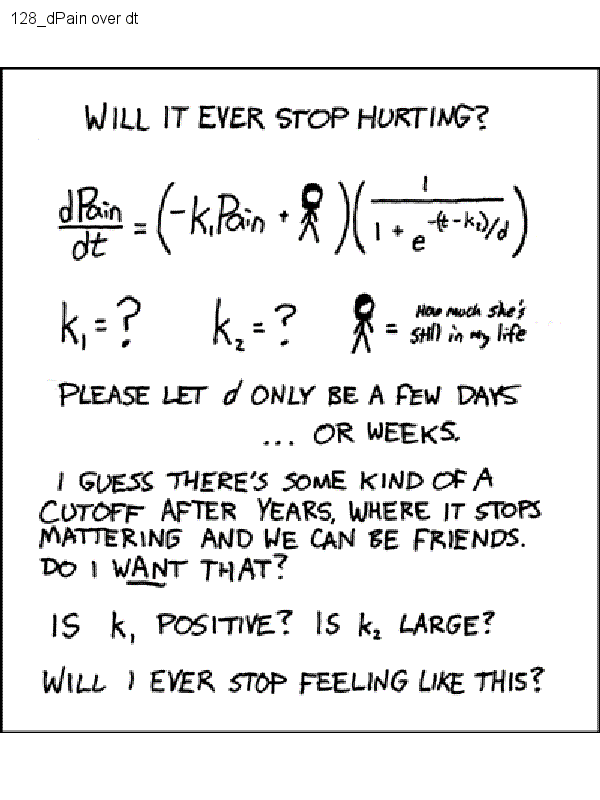 128_dPain over dt
WILL IT EVER STOP HURTING?
dPain/dt = (-k₁Pain + )(1/(1 + e^(-(t-k₂)/d)))
k₁ = ? k₂ = ? = How much she's still in my life
PLEASE LET d ONLY BE A FEW DAYS
... OR WEEKS.
I GUESS THERE'S SOME KIND OF A
CUTOFF AFTER YEARS, WHERE IT STOPS
MATTERING AND WE CAN BE FRIENDS.
DO I WANT THAT?
IS k₁ POSITIVE? IS k₂ LARGE?
WILL I EVER STOP FEELING LIKE THIS?